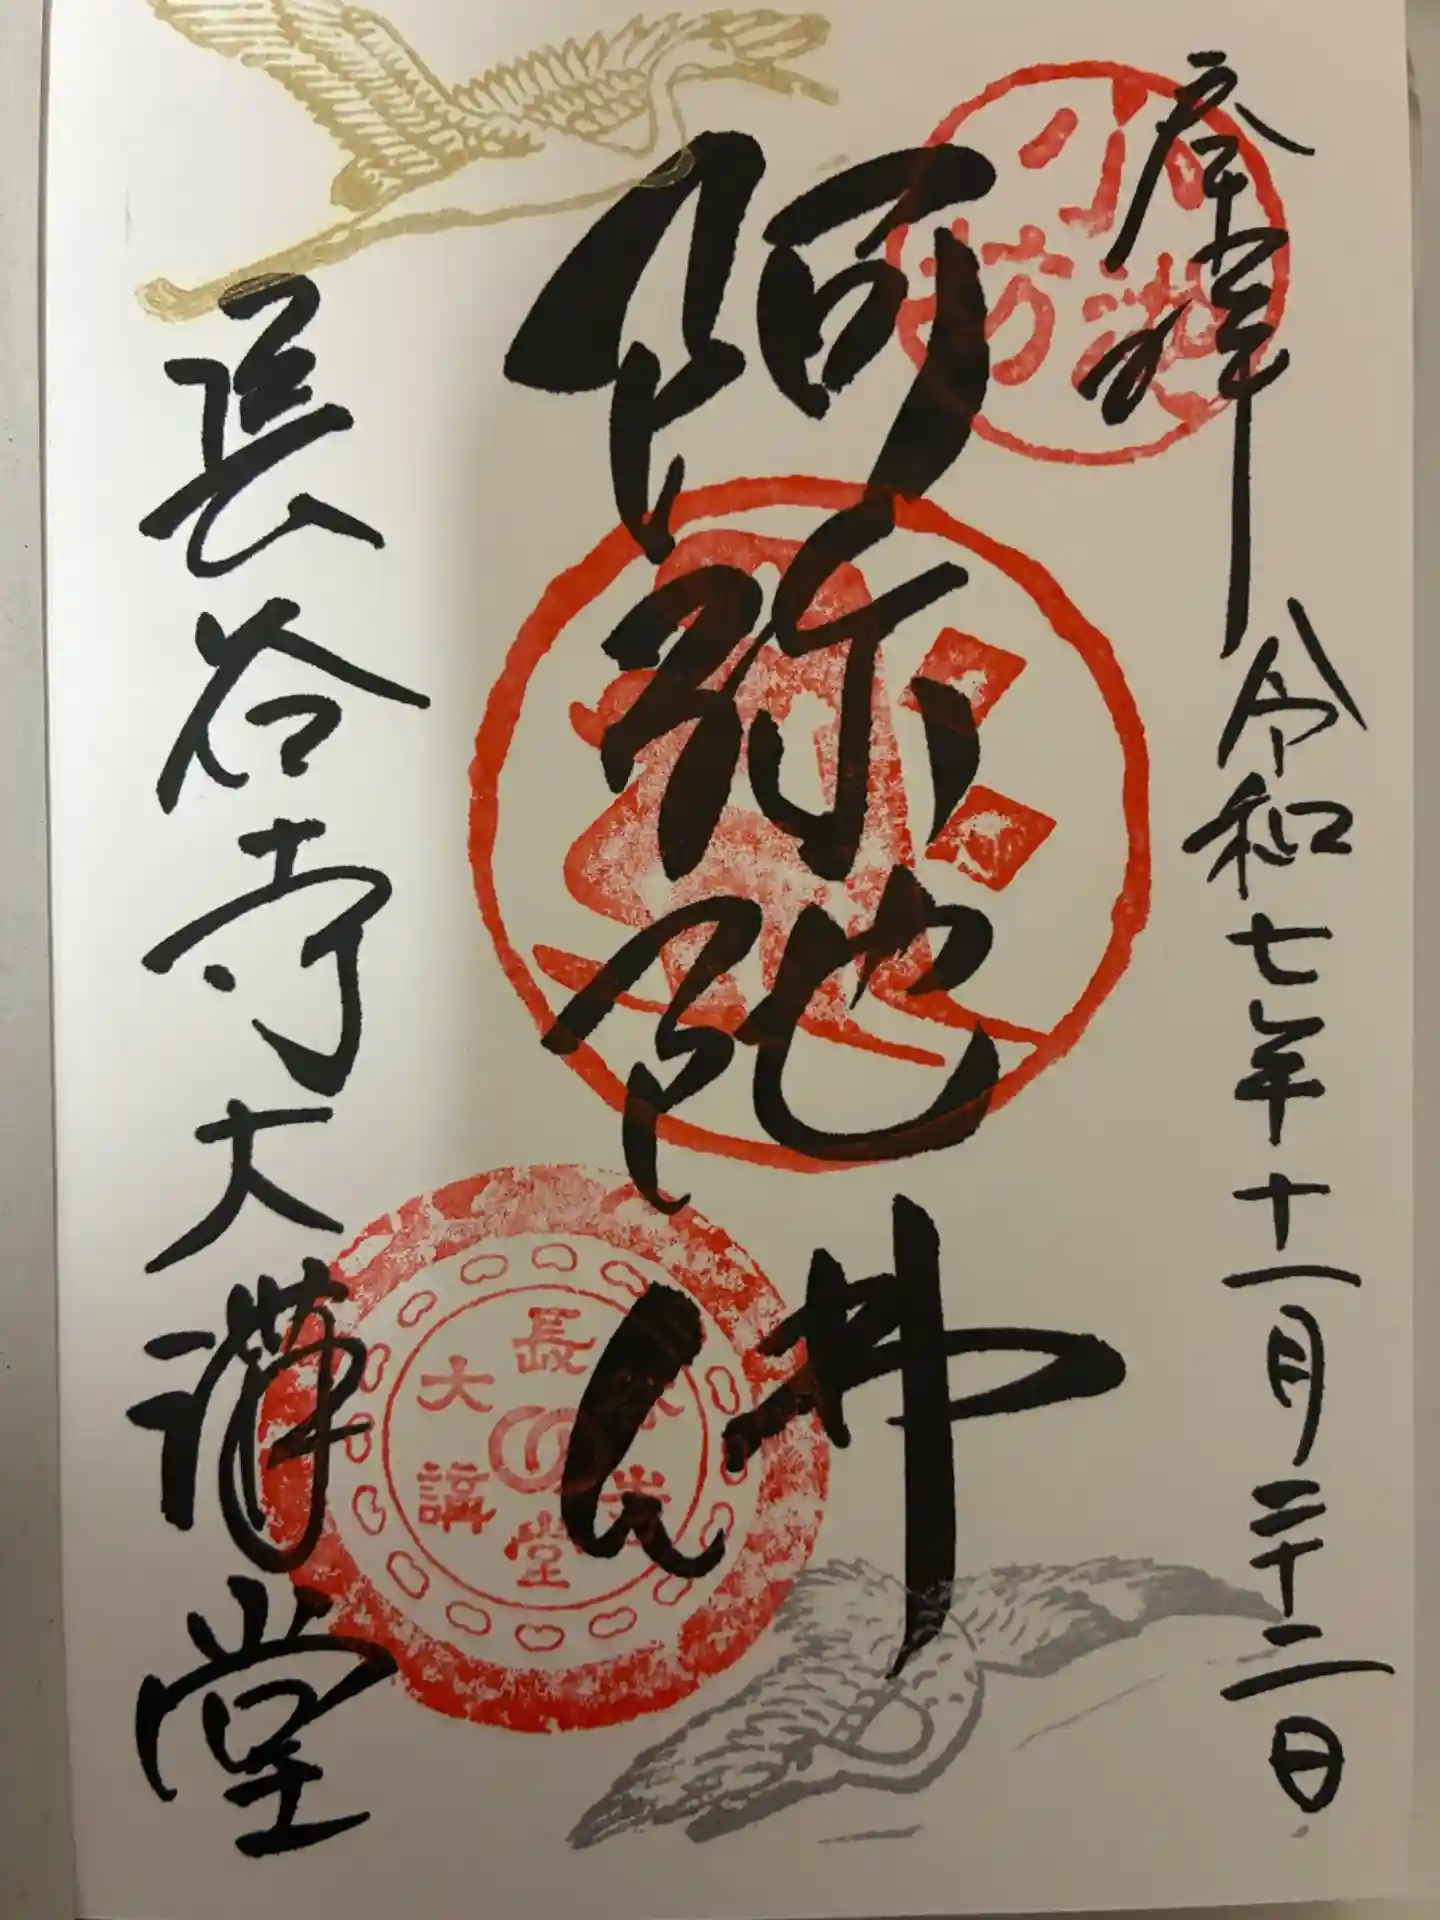 奉拝
令和七年十一月二十二日
阿弥陀佛
長谷寺大講堂
小池坊
長
大
講
堂